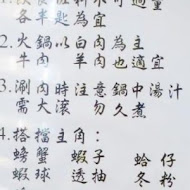 各半匙為宜
2.火鍋以白肉為主
牛肉 羊肉也適宜
3.涮肉時注意鍋中湯汁
需大滾 勿久煮
4.搭擋主角：
螃蟹 蝦子 蛤仔
蝦球 透抽 冬粉